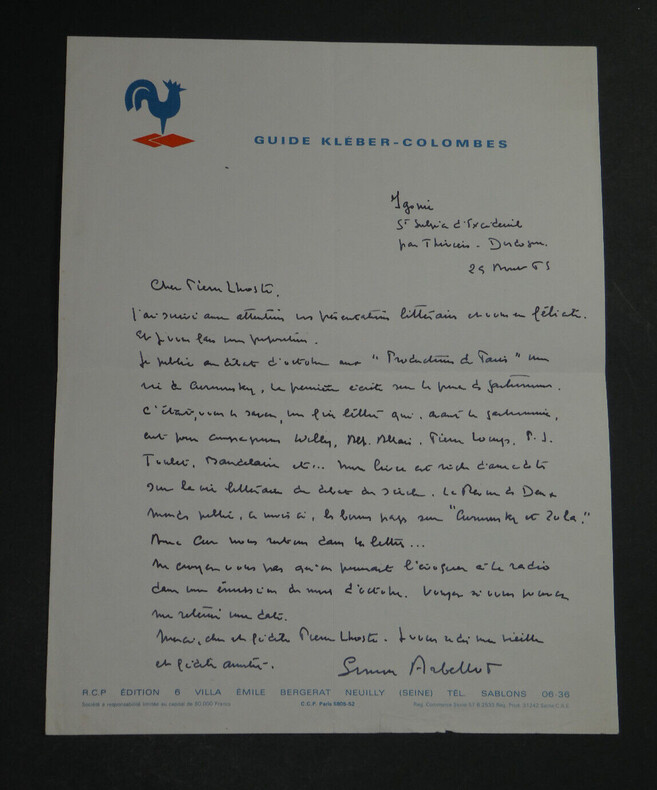 GUIDE KLÉBER-COLOMBES
St Sulpice d'Excideuil
par Thiviers - Dordogne.
65
Cher Pierre Lhoste,
J'ai suivi avec attention vos présentations littéraires et vous en félicite.
Et je vous fais une proposition.
Je publie au début d'octobre aux "Productions de Paris" une
vie de Curnonsky, la première écrite sur le prince des gastronomes.
C'était, vous le savez, un fin lettré qui, avant la gastronomie,
eut pour compagnons Willy, Alp. Allais, Pierre Louys, P. J.
Toulet, et... Mon livre est riche d'anecdotes
sur la vie littéraire du début du siècle. La Revue des Deux
Mondes publie, ce mois-ci, les bonnes pages sur "Curnonsky et Zola."
Avec Cur nous restons dans les lettres...
Ne croyez-vous pas qu'on pourrait l'évoquer à la radio
dans une émission du mois d'octobre. Voyez si vous pouvez
me retenir une date.
Merci, cher et fidèle Pierre Lhoste. Je vous redis ma vieille
et fidèle amitié.
Simon Arbellot
R.C.P ÉDITION 6 VILLA ÉMILE BERGERAT NEUILLY (SEINE) TÉL. SABLONS 06-36
Société à responsabilité limitée au capital de 80.000 Francs C.C.P. Paris 5805-52